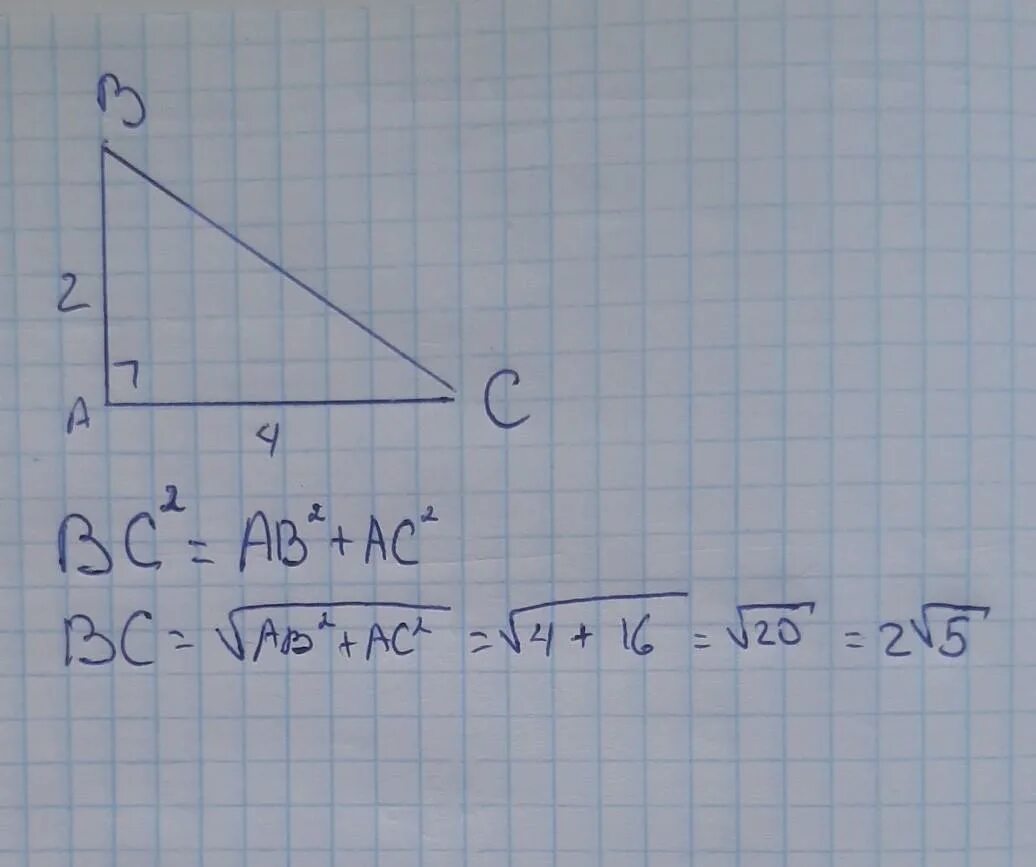 B
2
A
4
C
BC² = AB² + AC²
BC = √AB² + AC² = √4 + 16 = √20 = 2√5